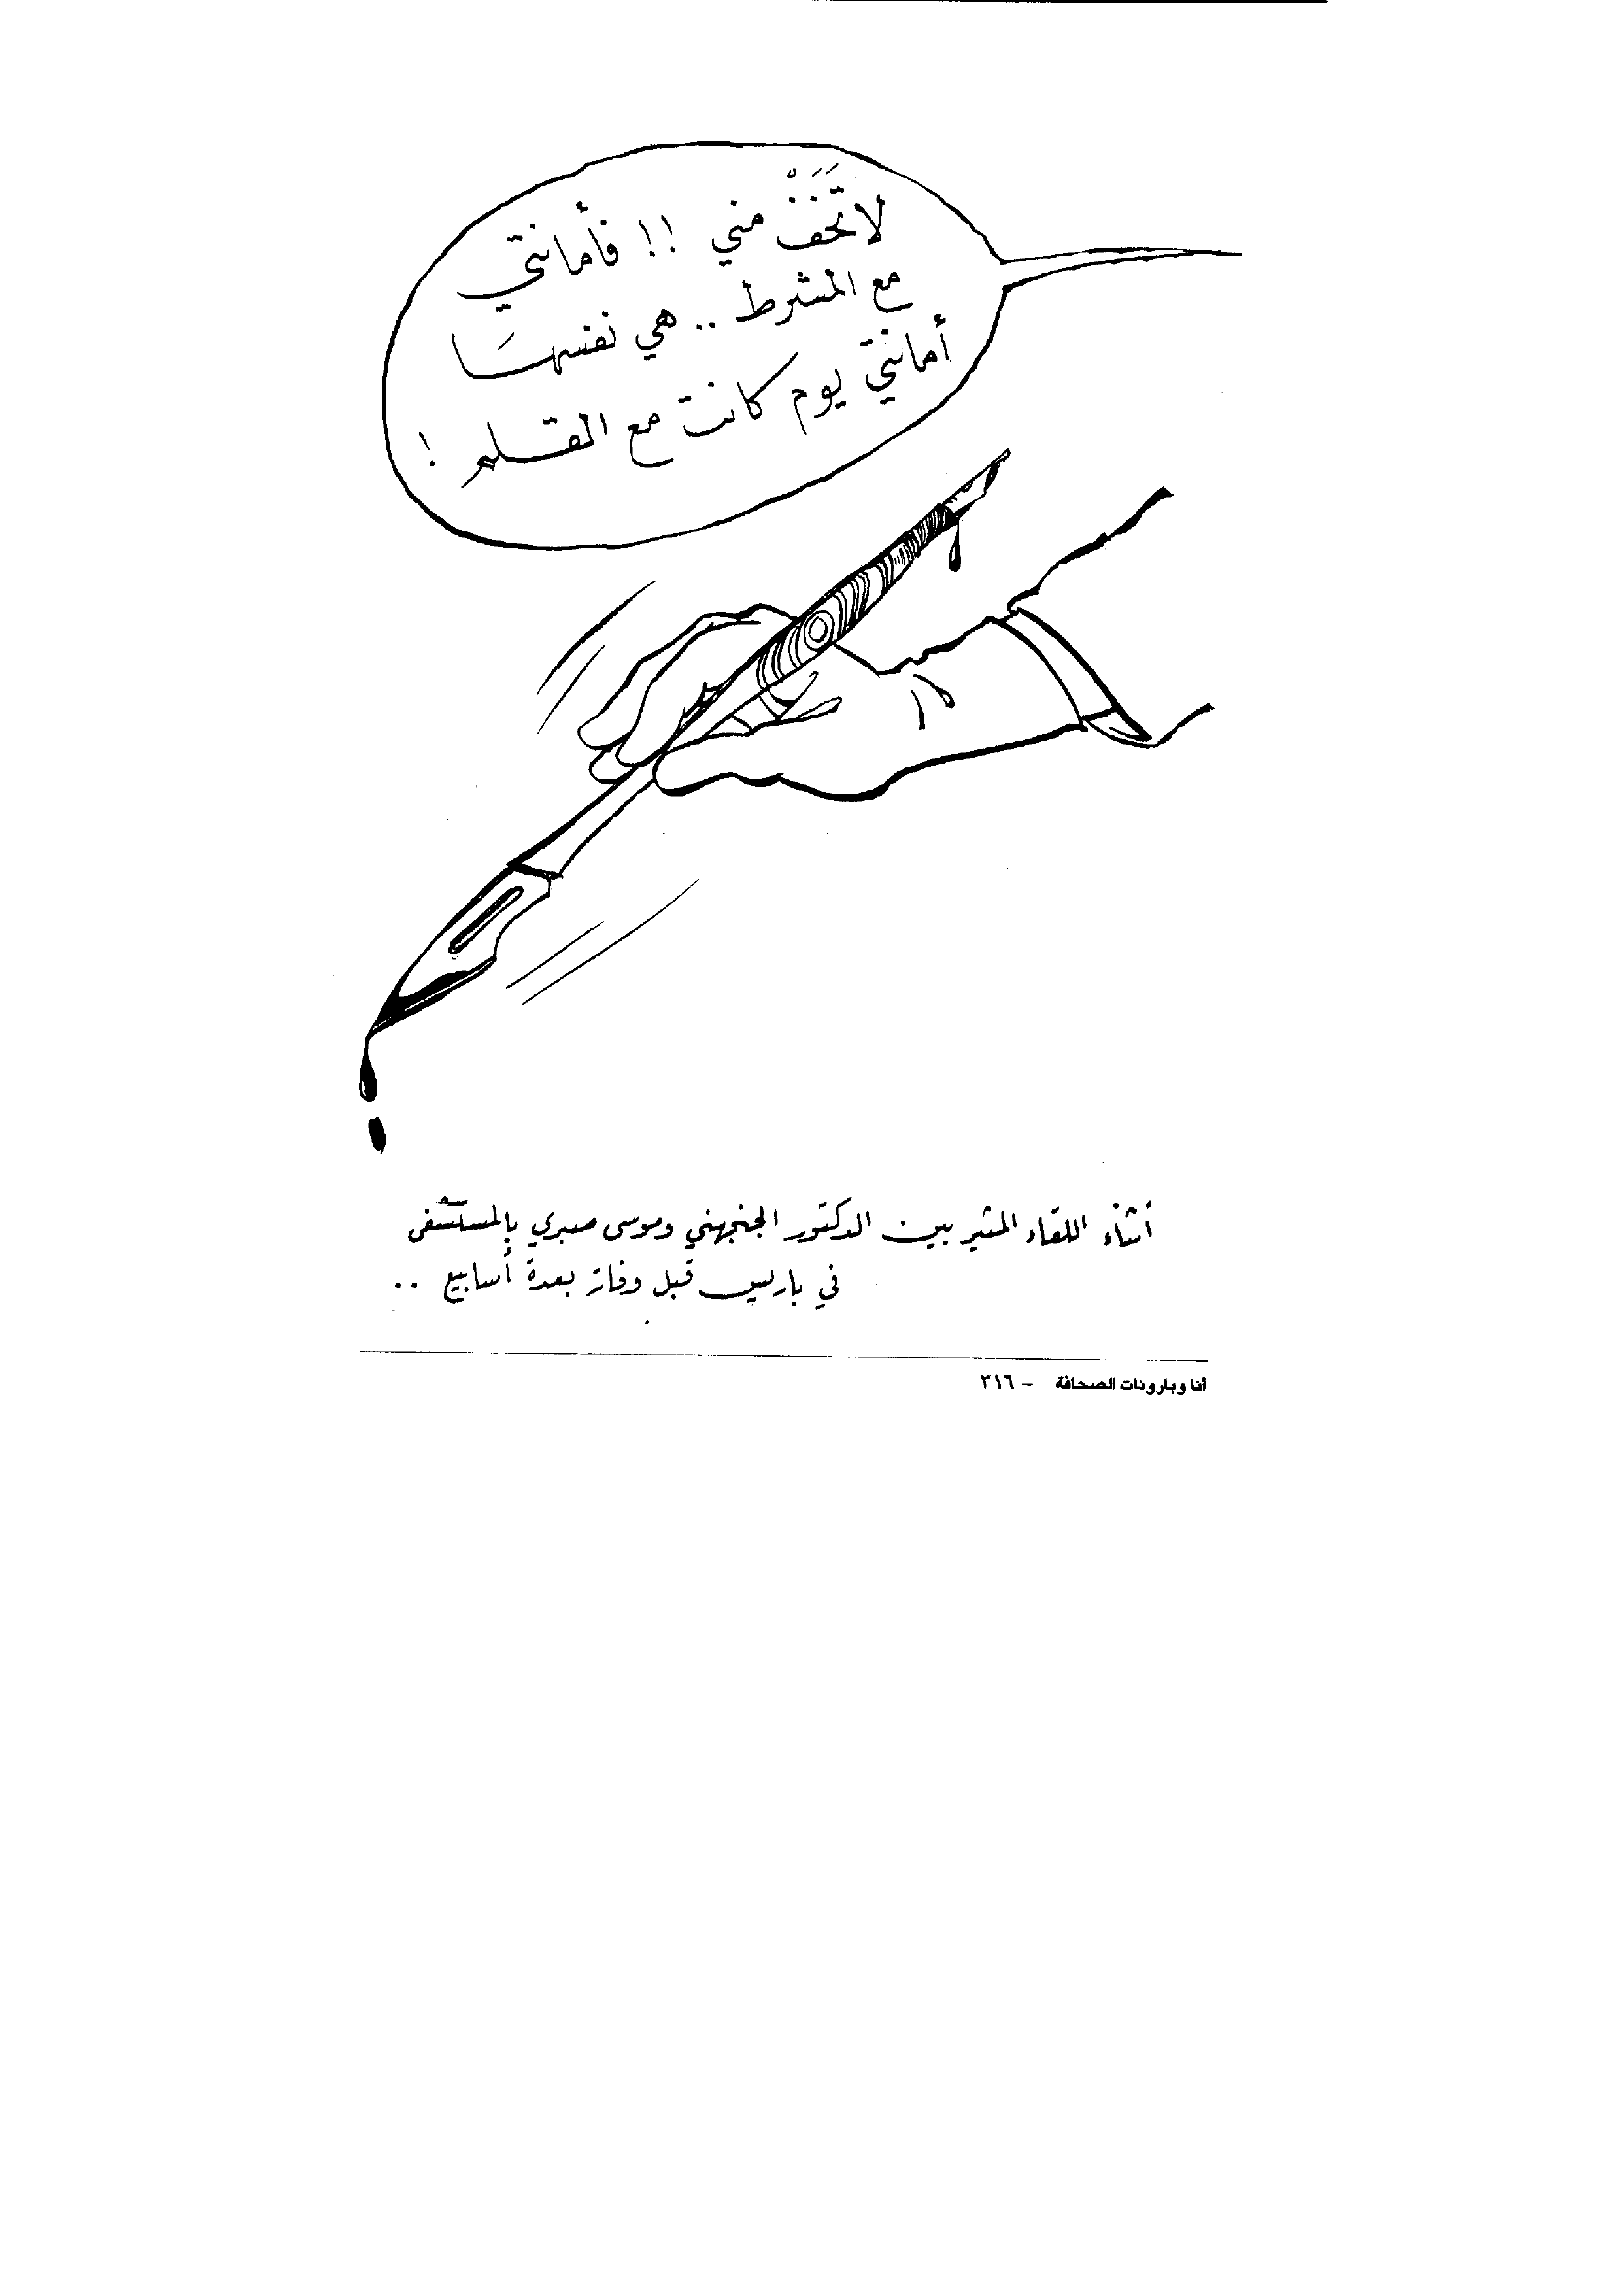 لا تَخَفْ مني !! فأمانتي
مع المشرط .. هي نفسهَا
أمانتي يوم كانت مع القلم !
أثناء اللقاء المثير بين الدكتور الجنجهني وموسى صبري بالمستشفى
في باريس قبل وفاته بعدة أسابيع ..
أنا وبارونات الصحافة – ٣١٦